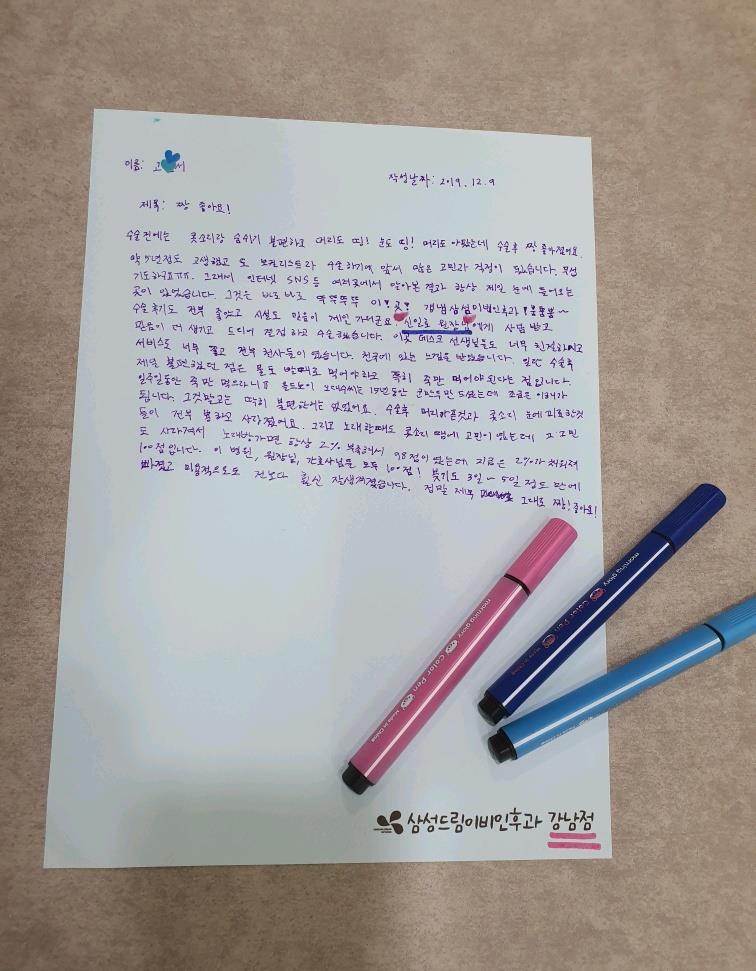 이름: 고 서
작성날짜: 2019. 12. 9
제목: 짱 좋아요!
수술전에는 콧소리랑 숨쉬기 불편하고 머리도 띵! 눈도 띵! 머리도 아팠는데 수술후 짱 좋아졌어요.
약 5년정도 고생했고 또 보컬리스트라 수술하기에 앞서 많은 고민과 걱정이 있습니다. 무섭
기도하구요ㅠㅠ. 그래서 인터넷 SNS등 여러곳에서 알아본결과 항상 제일 눈에 들어오는
곳이 있었습니다. 그것은 바로바로 뚜뚜뚜뚜 이!곳! 강남삼성이비인후과
수술후기도 전부 좋았고 시설도 믿음이 제일 가더군요! 신일호 원장님에게 상담 받고
믿음이 더 생기고 드디어 결정하고 수술했습니다. 이곳 데스크 선생님들은 너무 친절하시고
서비스도 너무 좋고 전부 천사들이었습니다. 천국에 있는 느낌을 받았습니다. 일단 수술후
제일 불편했던 점은 물도 빨대로 먹어야하고 특히 죽만 먹어야된다는 점입니다.
일주일동안 죽만 먹으라니!! 올드보이 오대수씨는 15년동안 군만두만 드셨는데 조금은 이해가
됩니다. 그것말고는 딱히 불편한거는 없었어요. 수술후 머리아픈것과 콧소리 눈에피로한것
들이 전부 뿅하고 사라졌어요. 그리고 노래할때도 콧소리 땜에 고민이 있는데 그 고민
도 사라져서 노래방가면 항상 2% 부족해서 98점이었는데 지금은 2%가 채워져
100점입니다. 이 병원, 원장님, 간호사님들 모두 100점! 붓기도 3일~5일 정도 만에
빠졌고 미용적으로도 전보다 훨신 잘생겨졌습니다. 정말 제목 그대로 짱! 좋아요!
morning glory Color Pen Made in China
morning glory Color Pen Made in China
삼성드림이비인후과 강남점